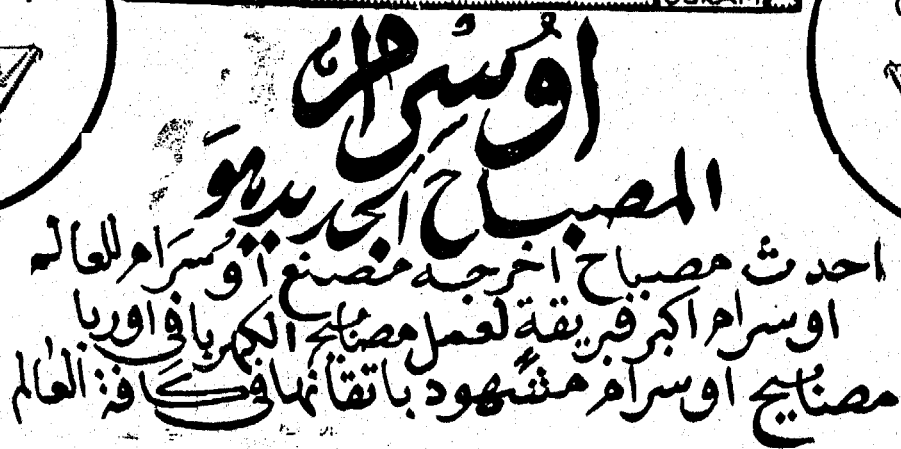 OSRAM
اوسرام
المصباح الجديد هو
احدث مصباح اخرجه مصنع اوسرام للعالم
اوسرام اكبر فبريقة لعمل مصابيح الكهربا في اوربا
مصابيح اوسرام مشهود باتقانها في كافة العالم